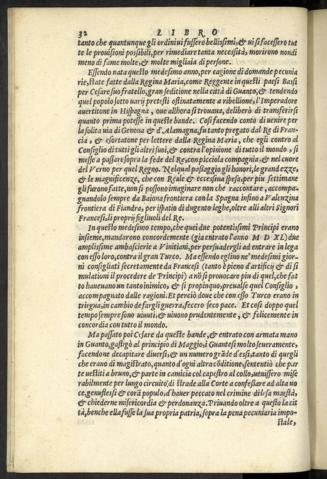 32 LIBRO
tanto che quantunque gli ordini ui fussero bellissimi, & ui si facessero tut
te le prouisioni possibili, per rimediare tanta necessità, morirono nondi
meno di fame molte, & molte migliaia di persone.
Essendo nata questo medesimo anno, per cagione di domande pecunia
rie, state fatte dalla Regina Maria, come Reggente in questi paesi Bassi
per Cesare suo fratello, gran seditione nella città di Guanto, & tendendo
quel popolo sotto uarij pretesti ostinatamente a ribellione, l'Imperadore
auertitone in Hispagna, oue allhora si trouaua, deliberò di transferirsi
quanto prima potesse in queste bande. Cosi facendo conto di uenire per
la solita uia di Genoua & d'Alamagna, fu tanto pregato dal Re di Fran
cia, & esortatone per lettere dalla Regina Maria, che egli contro al
Consiglio di tutti gli altri suoi, & contra l'opinione di tutto il mondo, si
messe a passare sopra la fede del Re, con picciola compagnia, & nel cuore
del Verno per quel Regno. Nel qual passaggio gli honori, le grandezze,
& le magnificenze, che con Reale & eccessiua spesa, per piu settimane
gli furono fatte, non si possono imaginare non che raccontare, accompa-
gnandolo sempre da Baiona frontiera con la Spagna insino a Valenzina
frontiera di Fiandra, per ispatio di dugento leghe, oltre alli altri Signori
Francesi, li proprij figliuoli del Re.
In questo medesimo tempo, che quei due potentissimi Principi erano
insieme, mandarono concordemente (gia entrato l'anno M D XL) due
amplissime ambascierie a Vinitiani, per persuadergli ad entrare in lega
con esso loro, contra il gran Turco. Ma essendo eglino ne' medesimi gior
ni consigliati secretamente da Francesi (tanto è pieno d'artificio & di si
mulationi il procedere de Principi) anzi si prouocare piu di quel, che fat
to haueuano un tanto inimico, & si propinquo, preualse quel Consiglio,
accompagnato dalle ragioni. Et perciò doue che con esso Turco erano in
triegua, in cambio de fargli guerra, fecero seco pace. Et cosi doppo quel
tempo sempre sono uiuuti, & uiuono prudentemente, & felicemente in
concordia con tutto il mondo.
Ma passato poi Cesare da queste bande, & entrato con armata mano
in Guanto, gastigò al principio di Maggio, i Guantesi molto seueramente,
facendone decapitare diuersi, & un numero grāde d'essi, tanto di quegli
che erano di magistrato, quanto d'ogni altra cōditione, sententiò che par
te uestiti a bruno, & parte in camicia col capestro al collo, uenissero mise
rabilmente per lungo circuito di strade alla Corte a confessare ad alta uo
ce, genuflessi & corā populo, d'hauer peccato nel crimine di lesa maestà,
& chiederne misericordia & perdonanza. Priuando oltre a questo la cit
tà, benche ella fusse la sua propria patria, sopra la pena pecuniaria impo-
stale,